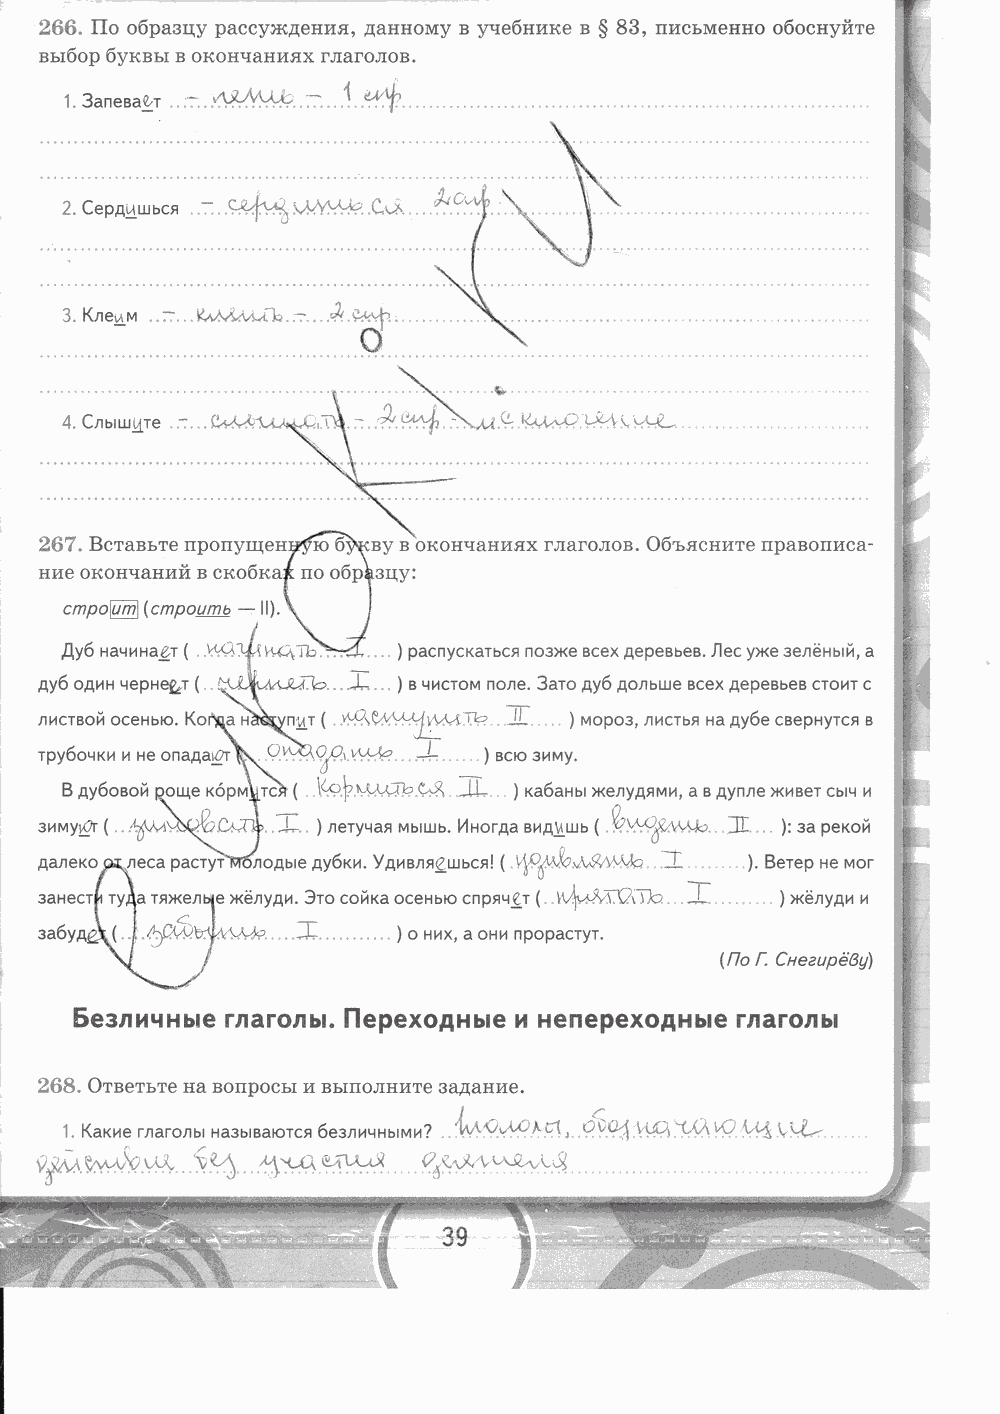 266. По образцу рассуждения, данному в учебнике в § 83, письменно обоснуйте
выбор буквы в окончаниях глаголов.
1. Запевает – петь – 1 спр
2. Сердишься – сердиться 2 спр.
3. Клеим – клеить – 2 спр.
4. Слышите – слышать – 2 спр – исключение
267. Вставьте пропущенную букву в окончаниях глаголов. Объясните правописа-
ние окончаний в скобках по образцу:
строит (строить — II).
Дуб начинает ( начинать – I ) распускаться позже всех деревьев. Лес уже зелёный, а
дуб один чернеет ( чернеть I ) в чистом поле. Зато дуб дольше всех деревьев стоит с
листвой осенью. Когда наступит ( наступить II ) мороз, листья на дубе свернутся в
трубочки и не опадают ( опадать I ) всю зиму.
В дубовой роще ко́рмится ( кормиться II ) кабаны желудями, а в дупле живет сыч и
зимуют ( зимовать I ) летучая мышь. Иногда видишь ( видеть II ): за рекой
далеко от леса растут молодые дубки. Удивляешься! ( удивлять I ). Ветер не мог
занести туда тяжелые жёлуди. Это сойка осенью спрячет ( прятать I ) жёлуди и
забудет ( забыть I ) о них, а они прорастут.
(По Г. Снегирёву)
Безличные глаголы. Переходные и непереходные глаголы
268. Ответьте на вопросы и выполните задание.
1. Какие глаголы называются безличными? Глаголы, обозначающие
действие без участия деятеля
39